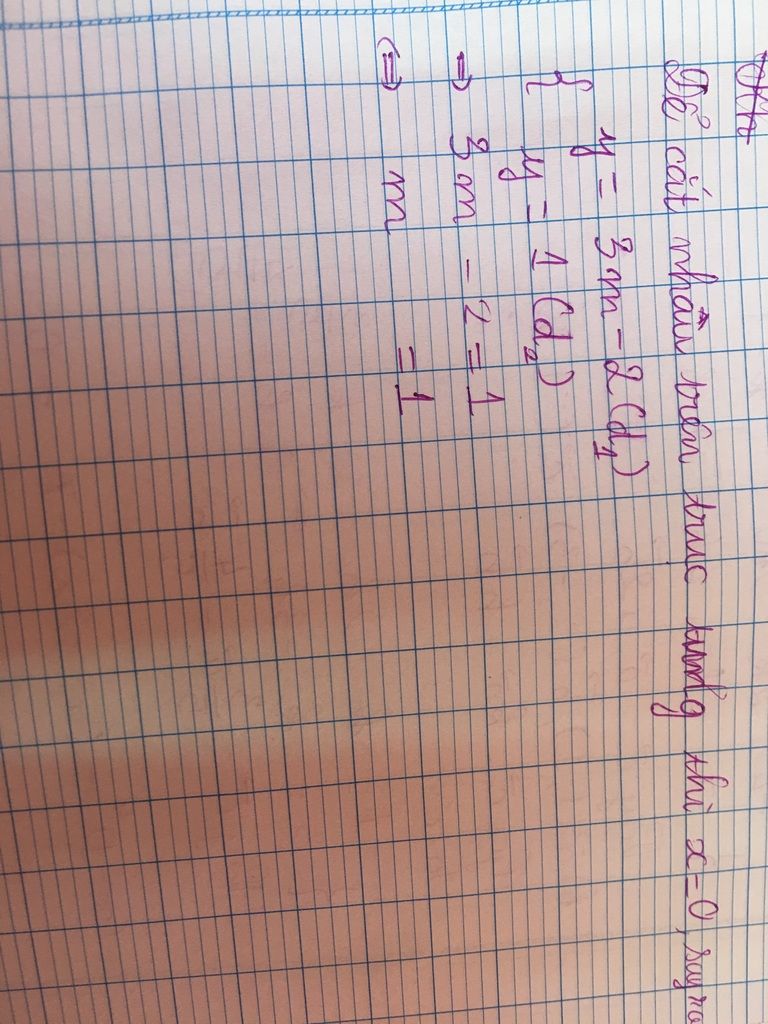 Để cắt nhau trên trục tung thì x=0, suy ra
{ y = 3m - 2 (d₁)
y = 1 (d₂)
⇒ 3m - 2 = 1
⇔ m = 1